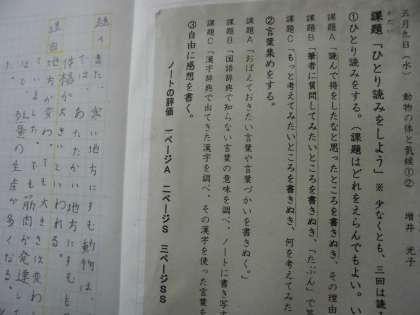 五月九日(水) 動物の体と気候①② 増井 光子
課題「ひとり読みをしよう」※少なくとも、三回は読
①ひとり読みをする。(課題はどれをえらんでもよい。い
課題A「読んで得をしたなと思ったところを書きぬき、その理由
課題B「筆者に質問してみたいところを書きぬき、「たぶん」で答
課題C「もっと考えてみたいところを書きぬき、何を考えてみた
②言葉集めをする。
課題A「おぼえておきたい言葉や言葉づかいを書きぬく。」
課題B「国語辞典で知らない言葉の意味を調べ、ノートに書き写す
課題C「漢字辞典で出てきた漢字を調べ、その漢字を使った言葉を
③自由に感想を書く。
ノートの評価 一ページA 二ページS 三ページSS
寒い地方にすむ動物は
あたたかい地方にすむ
体格が大きいといわれる
地方が変わ
ても大きさは変わ
でも筋肉が発達し
の生産が多くなる。